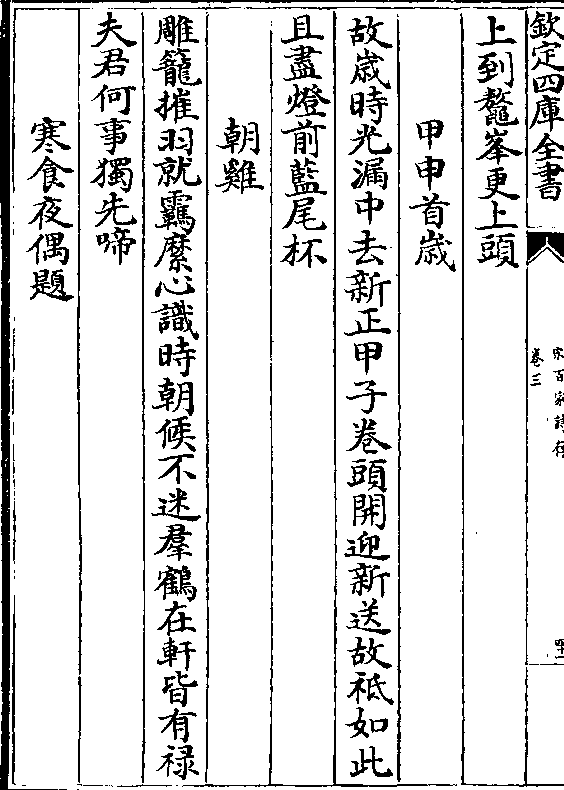 欽定四庫全書
宋百家詩存
卷三
上到鼇峯更上頭
甲申首歳
故歳時光漏中去新正甲子卷頭開迎新送故祗如此
且盡燈前藍尾杯
朝雞
雕籠摧羽就羈縻心識時朝候不迷羣鶴在軒皆有禄
夫君何事獨先啼
寒食夜偶題